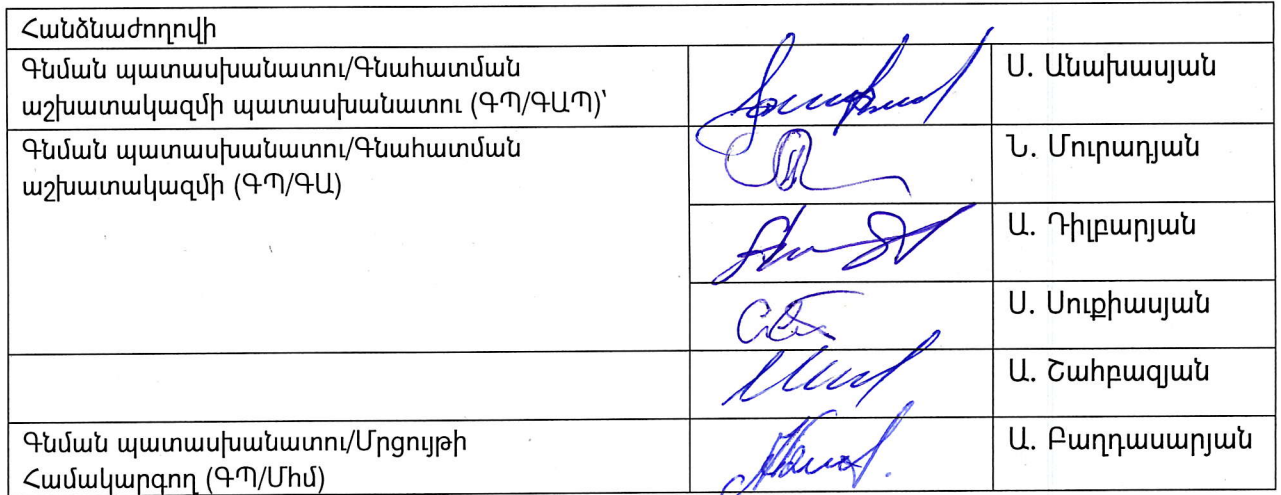 Հանձնաժողովի
Գնման պատասխանատու/Գնահատման
աշխատակազմի պատասխանատու (ԳՊ/ԳԱՊ)՝
Ս. Անախասյան
Գնման պատասխանատու/Գնահատման
աշխատակազմի (ԳՊ/ԳԱ)
Ն. Մուրադյան
Ա. Դիլբարյան
Ս. Սուքիասյան
Ա. Շահբազյան
Գնման պատասխանատու/Մրցույթի
Համակարգող (ԳՊ/Մհմ)
Ա. Բաղդասարյան